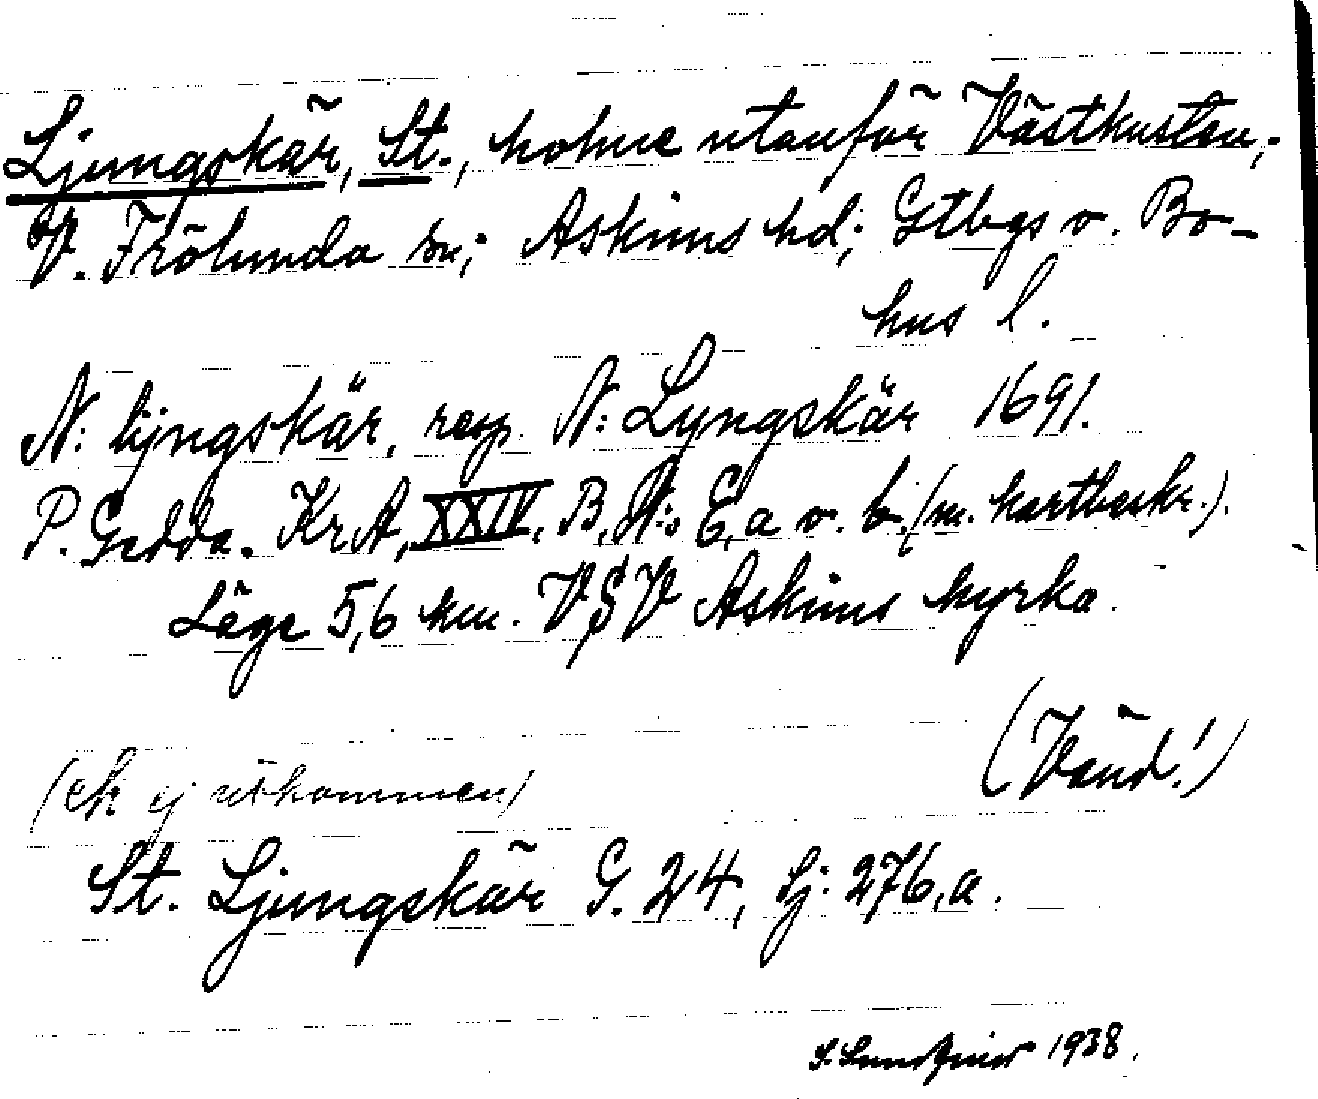 Ljungskär, St., holme utanför Västkusten,
V. Frölunda sn; Askims hd; Gtbgs o. Bo-
hus l.
N: ljngskär, resp. N: Lyngskär 1691.
P. Gedda. KrA, XXIV, B, N:o 6, a o. b. (m. kartbeskr.).
Läge 5,6 km. VSV Askims kyrka.
(Vänd!)
(ek ej utkommen)
St. Ljungskär G. 24, Sj: 276,a.
1938.